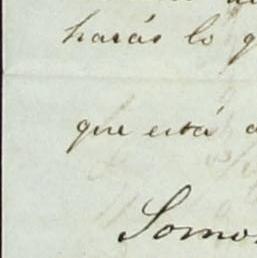 harás lo q
que está a
Somo